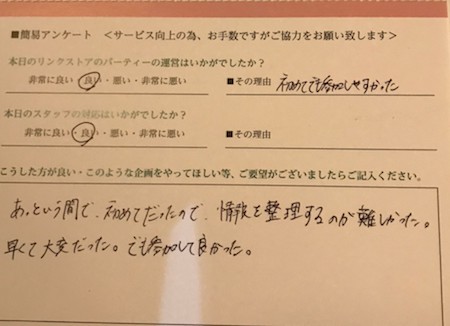 ■簡易アンケート <サービス向上の為、お手数ですがご協力をお願い致します>
本日のリンクストアのパーティーの運営はいかがでしたか?
非常に良い・良い・悪い・非常に悪い ■その理由 初めてでも参加しやすかった
本日のスタッフの対応はいかがでしたか?
非常に良い・良い・悪い・非常に悪い ■その理由
こうした方が良い・このような企画をやってほしい等、ご要望がございましたらご記入ください。
あっという間で、初めてだったので、情報を整理するのが難しかった。
早くて大変だった。でも参加して良かった。